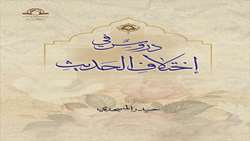 دروس في
إختلاف الحديث
حيدر المسجدي